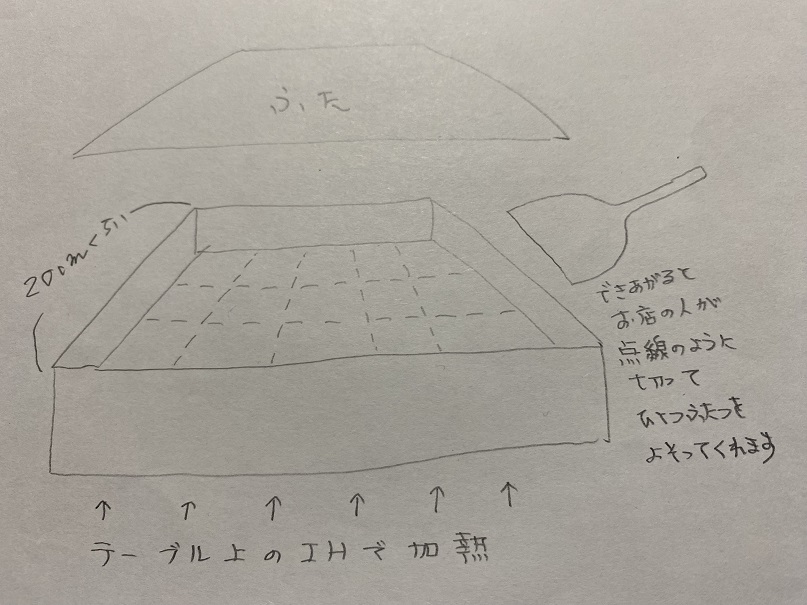 ふた
200mくらい
できあがると
お店の人が
点線のように
切って
ひとつふたつを
よそってくれます
テーブル上のIHで加熱